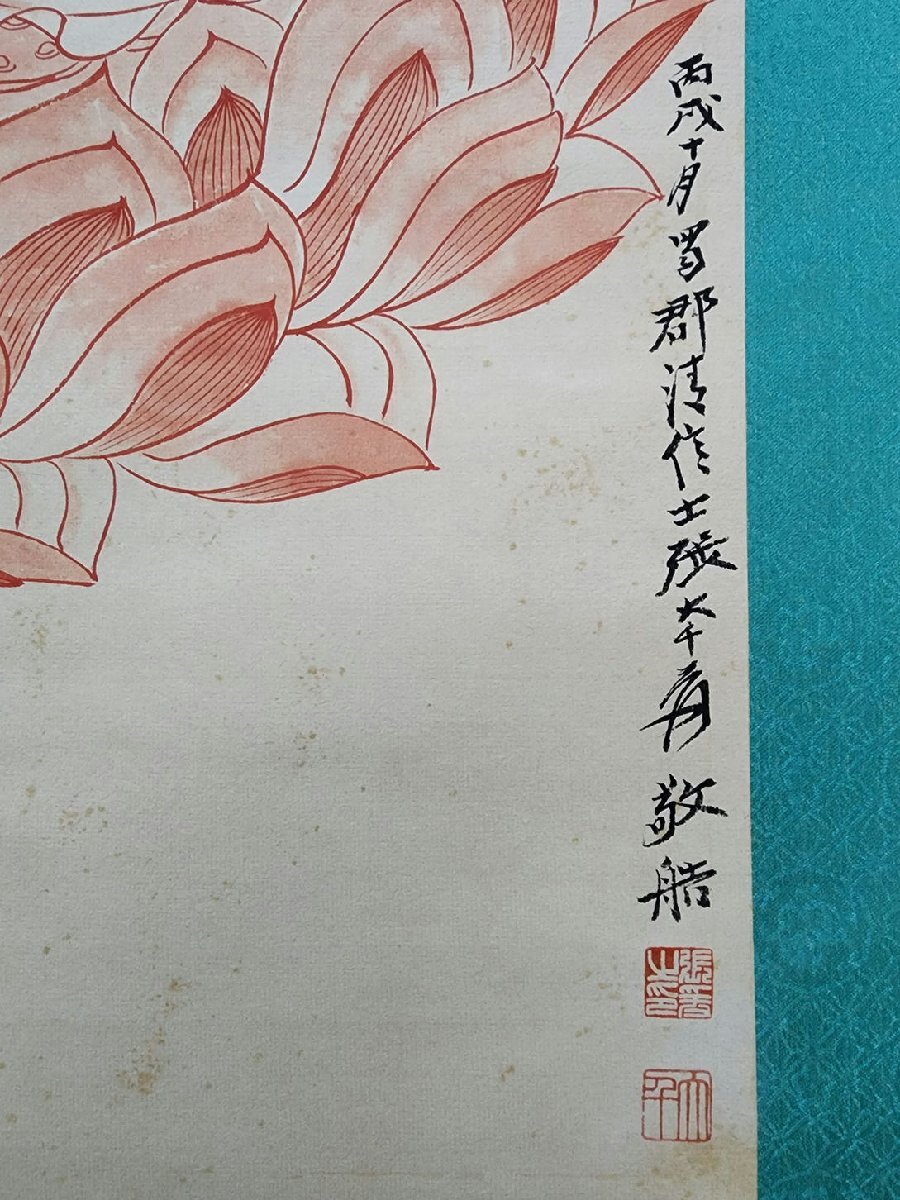 丙戌十月蜀郡清信士張大千爰敬艁
張爰之印
大千